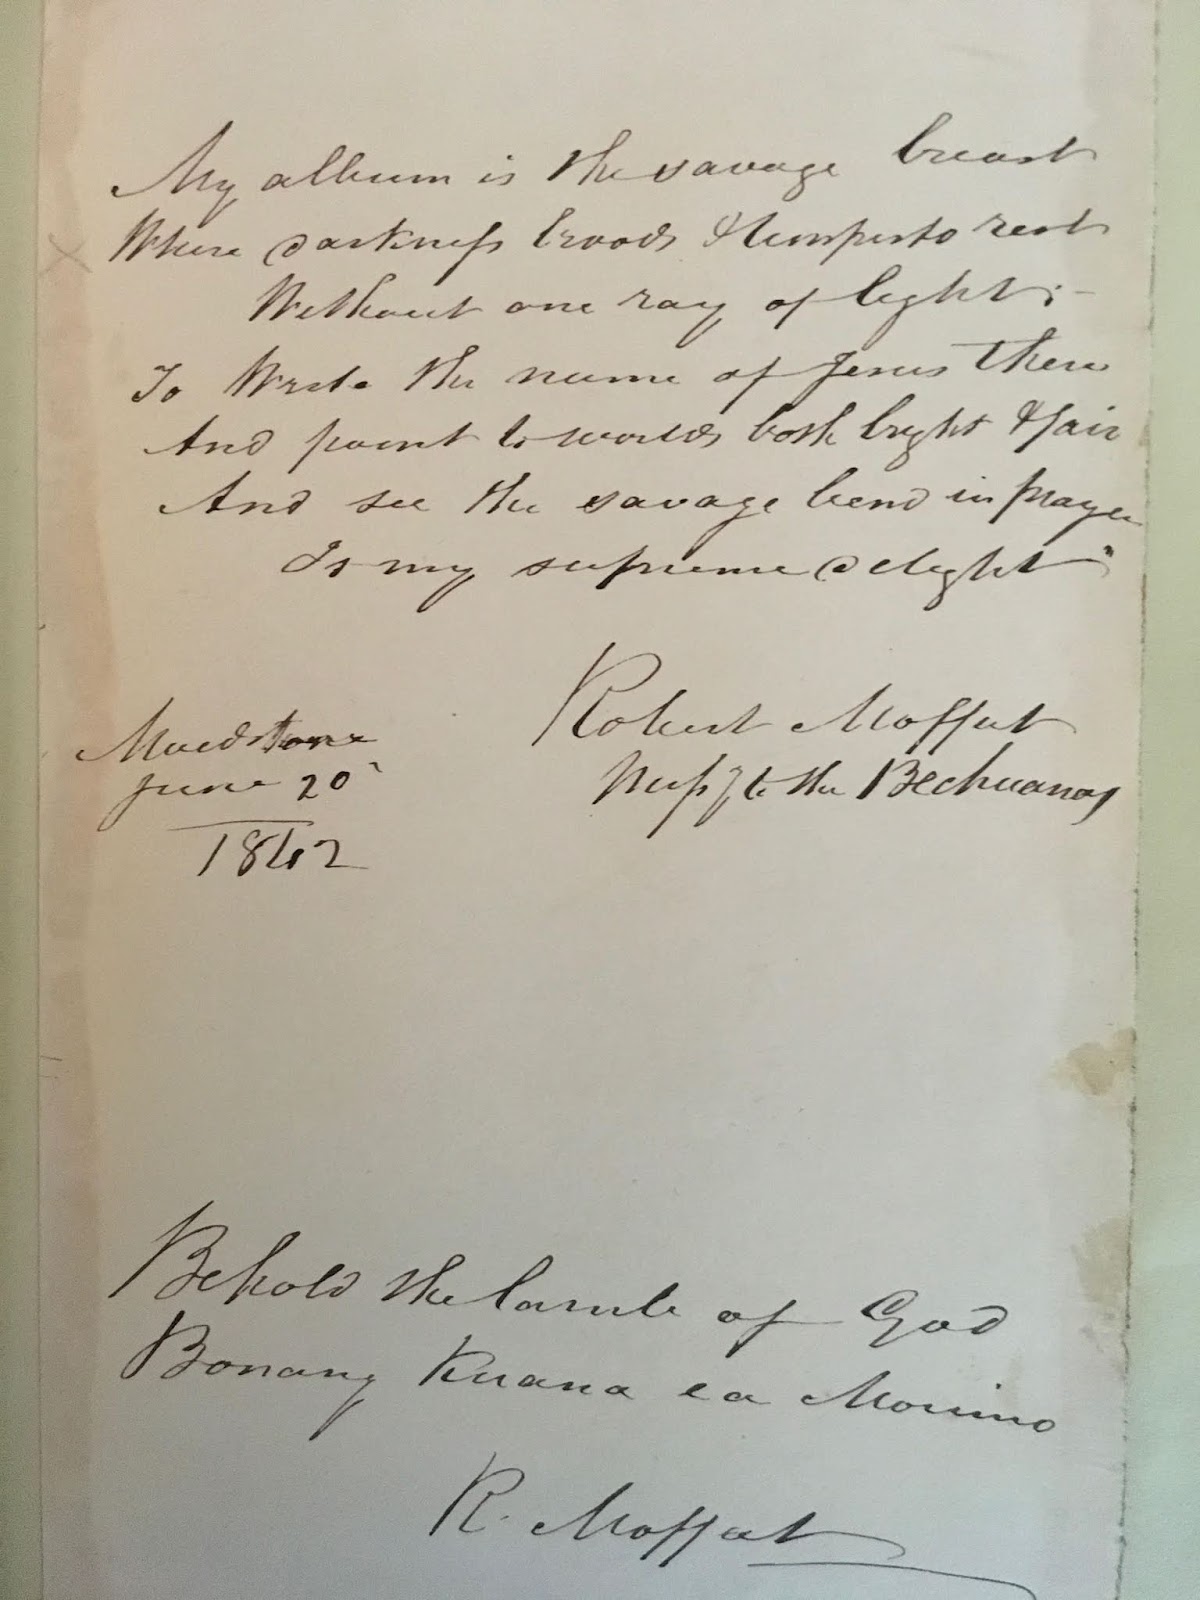 My album is the savage breast
Where darkness broods & tempests rest
Without one ray of light;-
To Write the name of Jesus there
And point to worlds both bright & fair
And see the savage bend in prayer
Is my supreme delight"
Robert Moffat
Maidstone
June 20
to the Bechuanas
1842
Behold the lamb of God
Bonang Kuana ea Morimo
R. Moffat